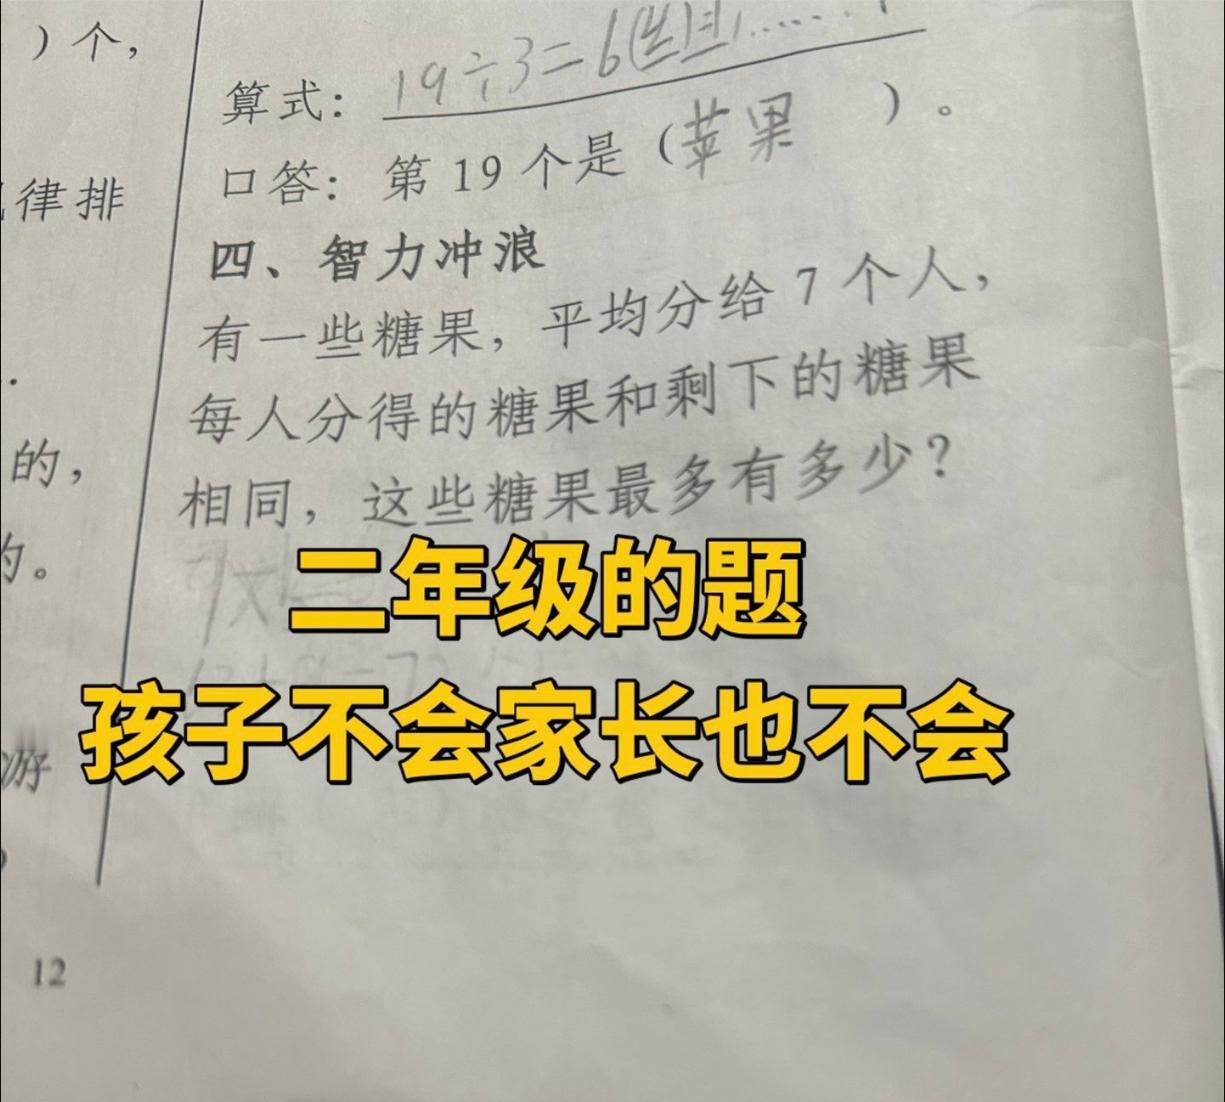 ）个，
算式：19÷3=6(组)……1
口答：第 19 个是（苹果）。
律排
四、智力冲浪
有一些糖果，平均分给 7 个人，
每人分得的糖果和剩下的糖果
的，
相同，这些糖果最多有多少？
的。
二年级的题
孩子不会家长也不会
游
12